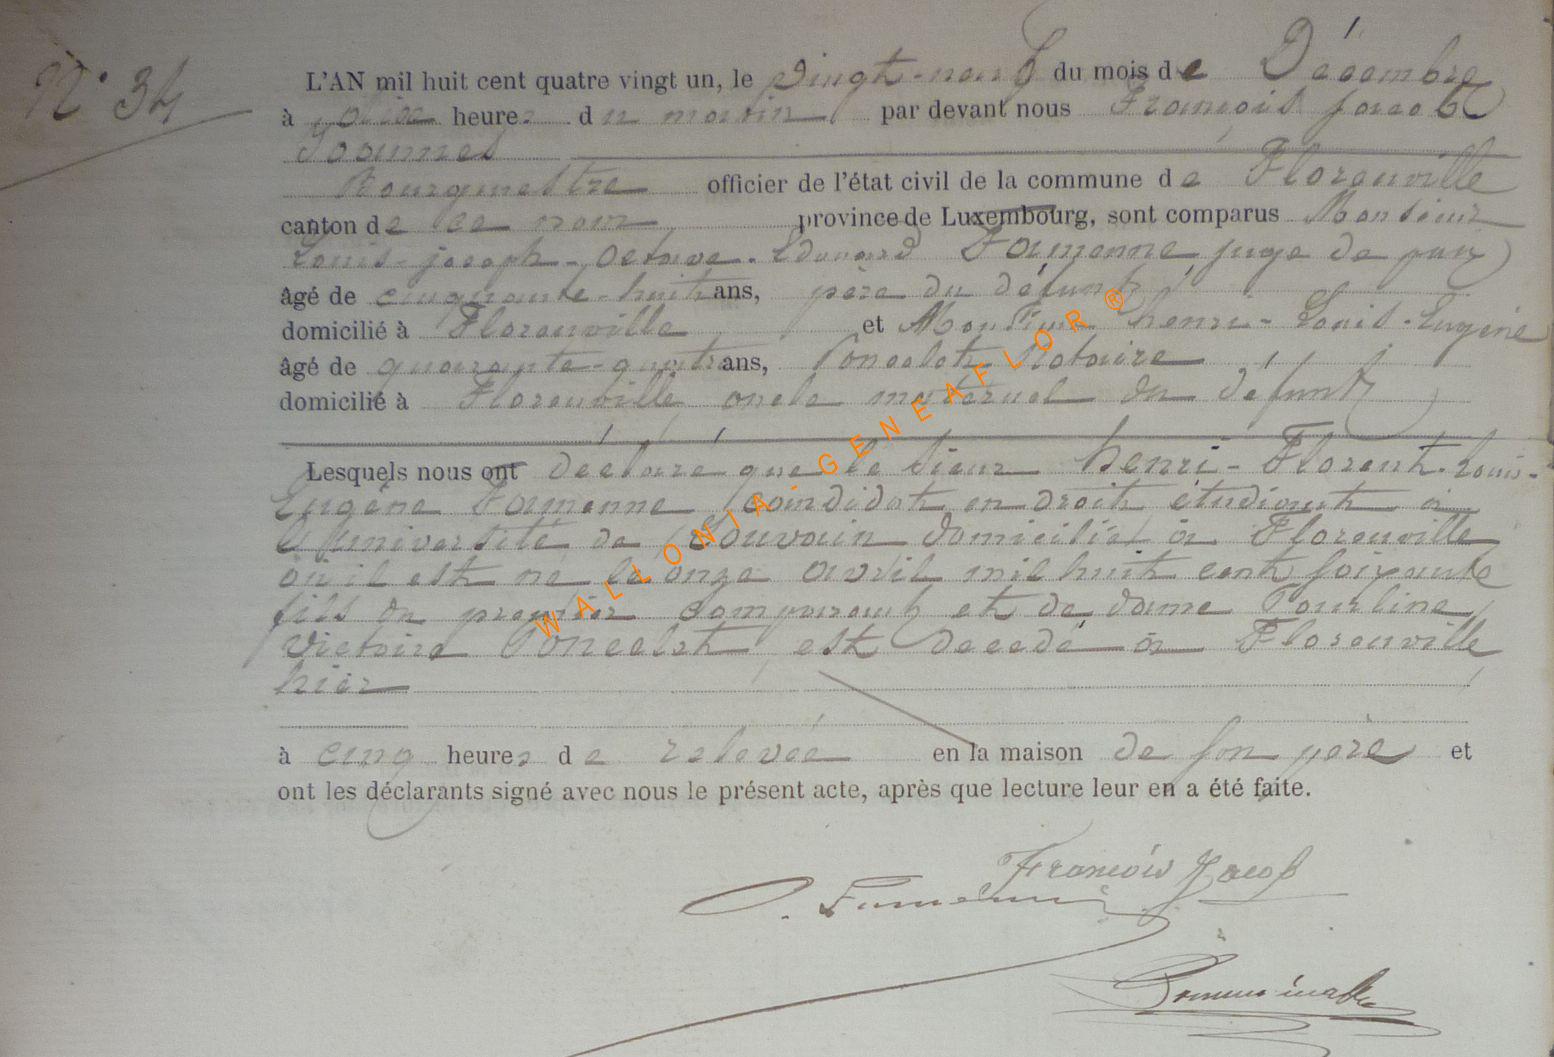 N° 34
L'AN mil huit cent quatre vingt un, le Vingt-neuf du mois de Décembre
à dix heures du matin par devant nous François Jacob
Bourgmestre officier de l'état civil de la commune de Florenville
canton de ce nom province de Luxembourg, sont comparus Monsieur
Louis-joseph-Octave-Edouard Famenne juge de paix
âgé de cinquante-huit ans, père du défunt
domicilié à Florenville et Monsieur henri-Louis-Eugène
âgé de quarante-quatre ans, Poncelet Notaire
domicilié à Florenville oncle maternel du défunt
Lesquels nous ont déclaré que le sieur henri-Florent-Louis-
Eugène Famenne candidat en droit étudiant à
l'université de Louvain domicilié à Florenville
où il est né le onze avril mil huit cent soixante
fils du premier comparant et de dame Pauline
Victoire Poncelet est décedé à Florenville
hier
à cinq heures de relevée en la maison de son père et
ont les déclarants signé avec nous le présent acte, après que lecture leur en a été faite.
François Jacob
O. Famenne
WALLONIA-GENEAFLOR®